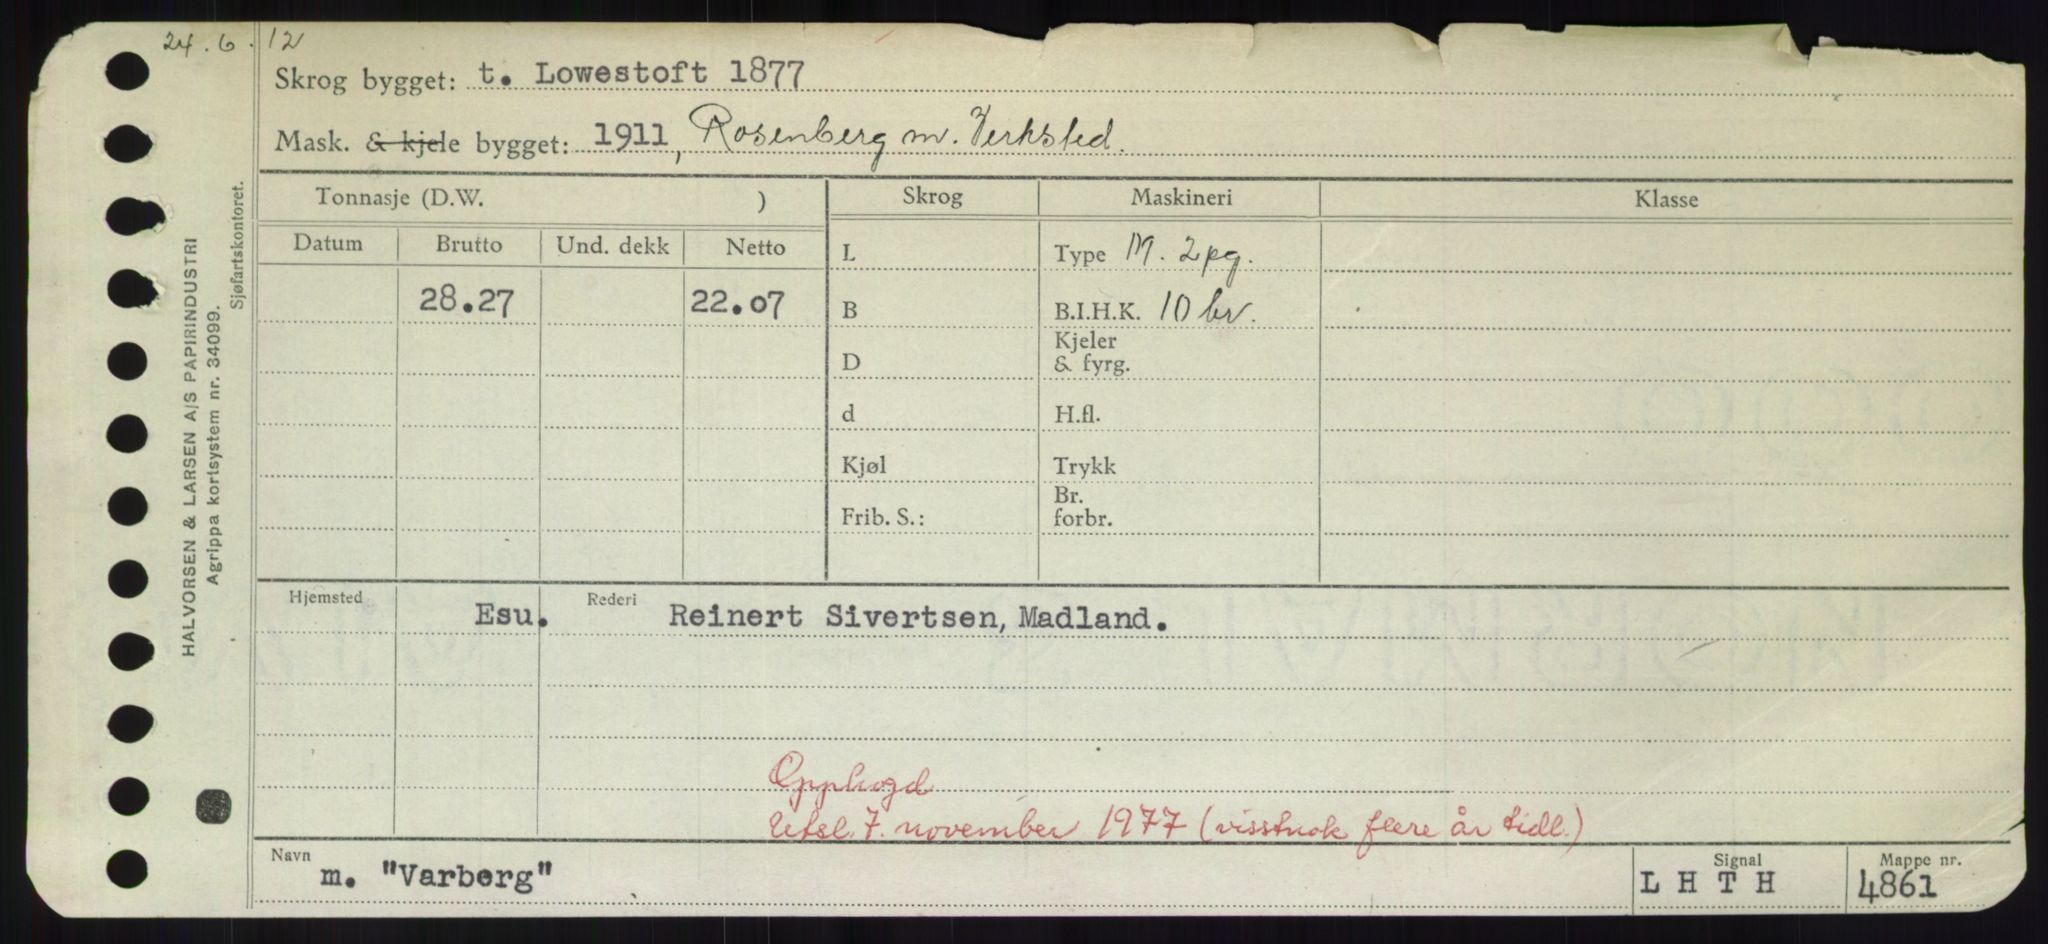 24.6.12
Skrog bygget: t. Lowestoft 1877
Mask. & kjele bygget: 1911, Rosenberg m. Verksted.
Tonnasje (D.W. ) Skrog Maskineri Klasse
Datum Brutto Und. dekk Netto L Type M. 2pg.
28.27 22.07 B B.I.H.K. 10 br.
D Kjeler & fyrg.
d H.fl.
Kjøl Trykk
Frib. S.: Br. forbr.
Hjemsted Esu. Rederi Reinert Sivertsen, Madland.
Opphogd
Utsl. 7. november 1977 (visstnok flere år tidl.)
Navn m. "Varberg" Signal L H T H Mappe nr. 4861
HALVORSEN & LARSEN A/S PAPIRINDUSTRI
Agrippa kortsystem nr. 34099.
Sjøfartskontoret.